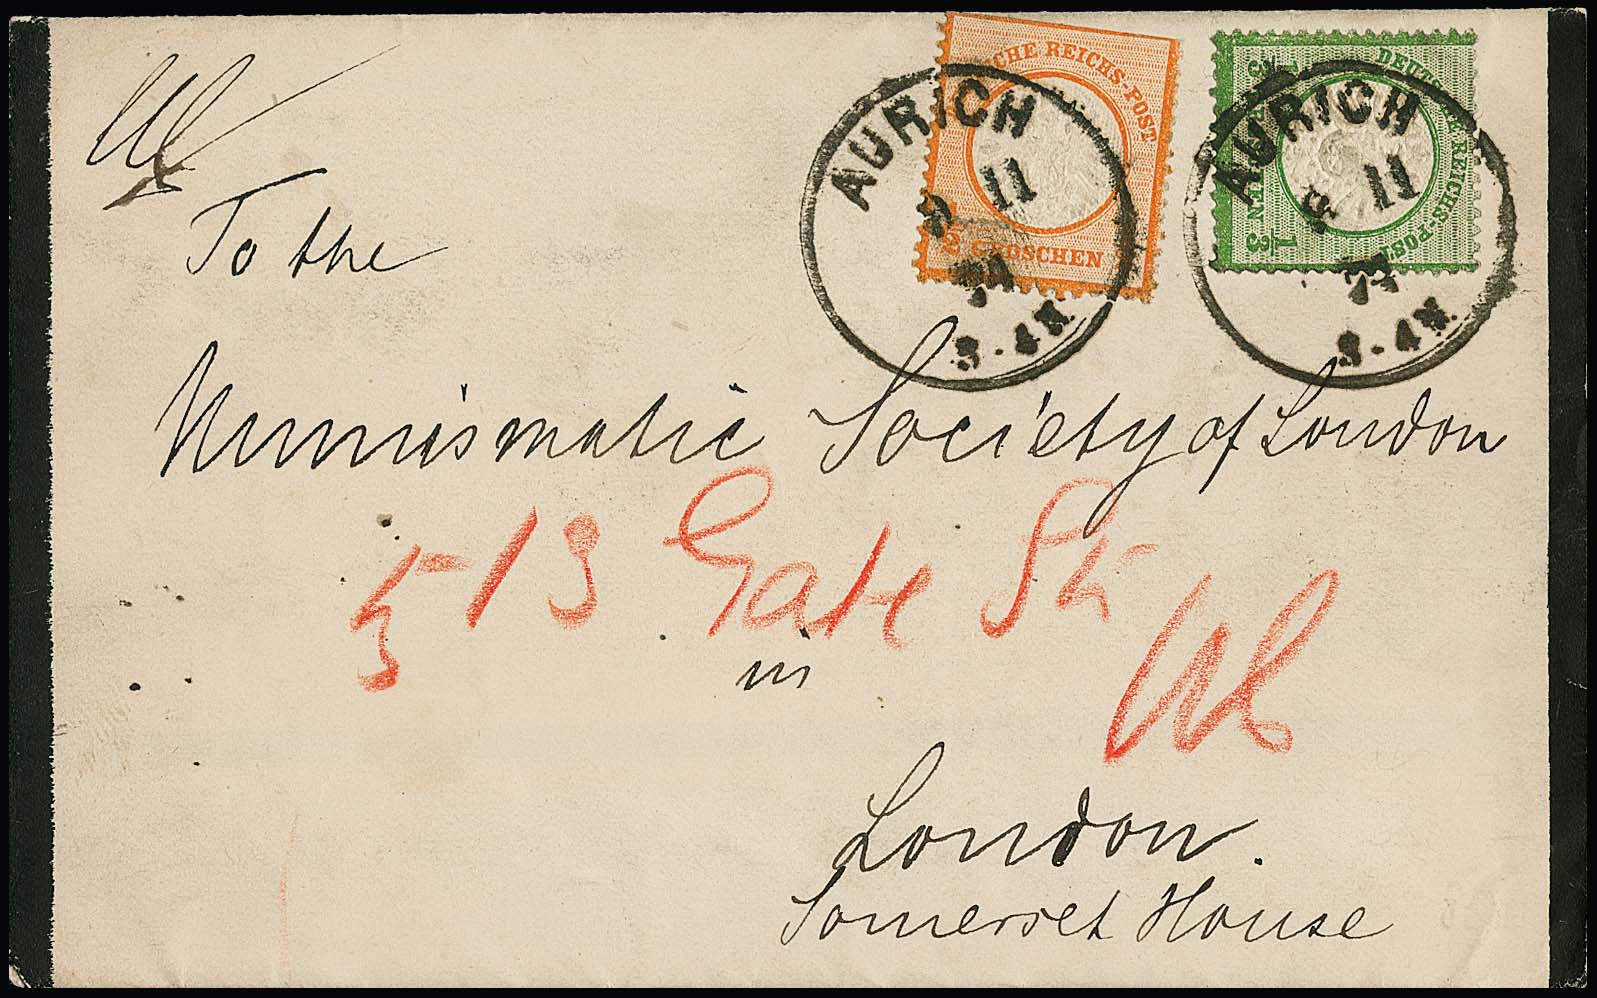 CHE REICHS-POST
1/2 GROSCHEN
AURICH
11
3-4N
DEUTSCHE REICHS-POST
1/3
1/3
AURICH
11
74
3-4N
To the
Numismatic Society of London
5 13 Gate St
in
London.
Somerset House